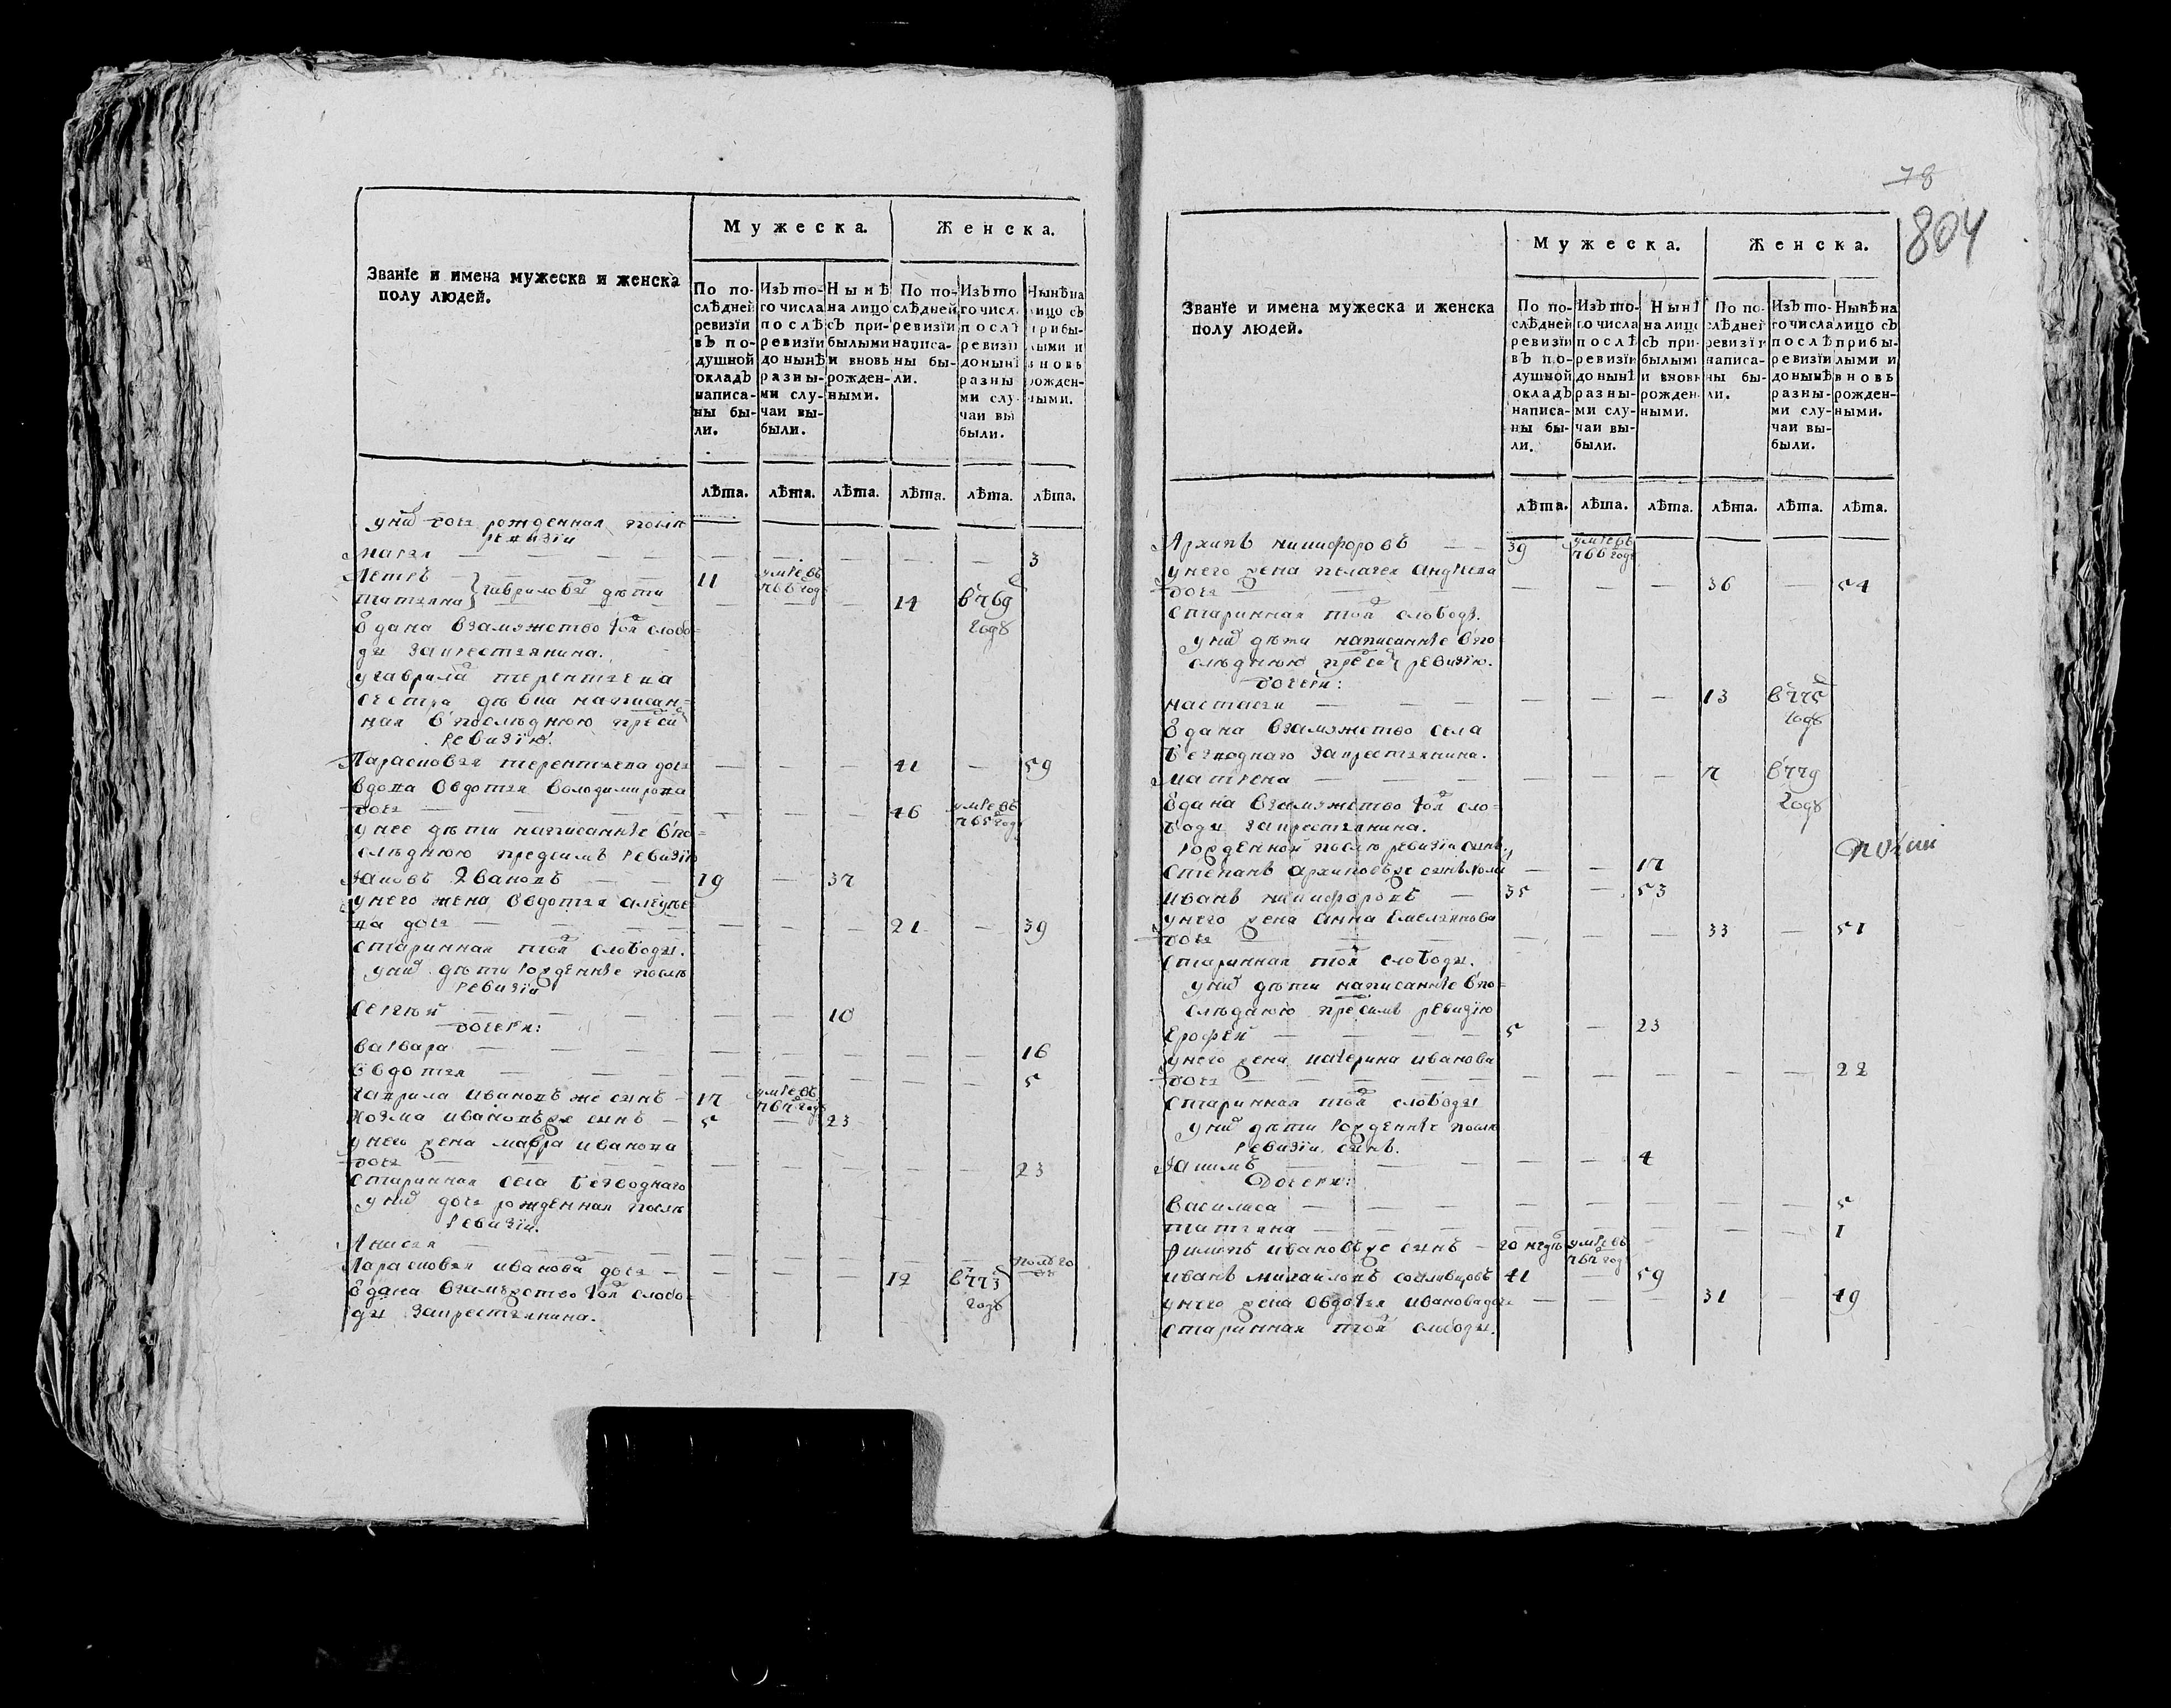 Мужеска. Женска.
Званїе и имена мужеска и женска полу людей.
По послѣдней ревизїи въ подушной окладъ написаны были.
Изъ того числа послѣ ревизїи до нынѣ разными случаи выбыли.
Нынѣ на лицо съ прибылыми и вновь рожденными.
По послѣдней ревизїи написаны были.
Изъ того числа послѣ ревизїи до нынѣ разными случаи выбыли.
Нынѣ на лицо съ прибылыми и вновь рожденными.
лѣта. лѣта. лѣта. лѣта. лѣта. лѣта.
у них дочь рожденная после
ревизїи
3
Петръ 11 умре въ 766 годе
татьяна гавриловы дети 14 в 769
Вдана взамужство той слобо= годе
ды за крестьянина.
у гаврила терентьева
сестра девка написан=
ная в последнюю пред сим
ревизїю.
Парасковья терентьева дочь 41 59
вдова овдотья володимирова
дочь 46 умре въ 765 годе
у нее дети написанные в по=
следнюю пред симъ ревизїю
Яковъ Иванов 19 37
у него жена овдотья
дочь 21 39
старинная той слободы.
у них дети рожденные после
ревизїи
Сергей 10
дочери:
варвара 16
овдотья 5
гаврила ивановъ же сынъ 17 умре въ 767 годе
козма ивановъ же сынъ 5 23
у него жена мавра иванова
дочь 23
старинная села безводнаго
у них дочь рожденная после
ревизїи.
Анисья полъго
да
Парасковья иванова дочь 12 в 773
Вдана взамужство той слобо= годе
ды за крестьянина.
78
804
Мужеска. Женска.
Званїе и имена мужеска и женска полу людей.
По послѣдней ревизїи въ подушной окладъ написаны были.
Изъ того числа послѣ ревизїи до нынѣ разными случаи выбыли.
Нынѣ на лицо съ прибылыми и вновь рожденными.
По послѣдней ревизїи написаны были.
Изъ того числа послѣ ревизїи до нынѣ разными случаи выбыли.
Нынѣ на лицо съ прибылыми и вновь рожденными.
лѣта. лѣта. лѣта. лѣта. лѣта. лѣта.
Архипъ никифоровъ 39 умре въ 766 годе
у него жена пелагея андреева
дочь 36 54
старинная той слободы.
у них дети написанные в по=
следнюю пред сим ревизїю.
дочери:
настасья 13 в 775
Вдана взамужство села годе
безводнаго за крестьянина.
матрена 7 в 779
Вдана взамужство той сло= годе
боды за крестьянина.
рожденной после ревизїи сынъ
степанъ архиповъ же сынъ 17
иванъ никифоровъ 35 53
у него жена анна емельянова
дочь 33 51
старинная той слободы.
у них дети написанные в по=
следнюю пред симъ ревизїю
Ерофей 5 23
у него жена катерина иванова
дочь 22
старинная той слободы
у них дети рожденные после
ревизїи. сынъ.
Якимъ 4
Дочери:
василиса 5
татьяна 1
филипъ ивановъ же сынъ 20 недѣ умре въ 767 годе
иванъ михайловъ 41 59
у него жена овдотья иванова дочь 31 49
старинная той слободы.